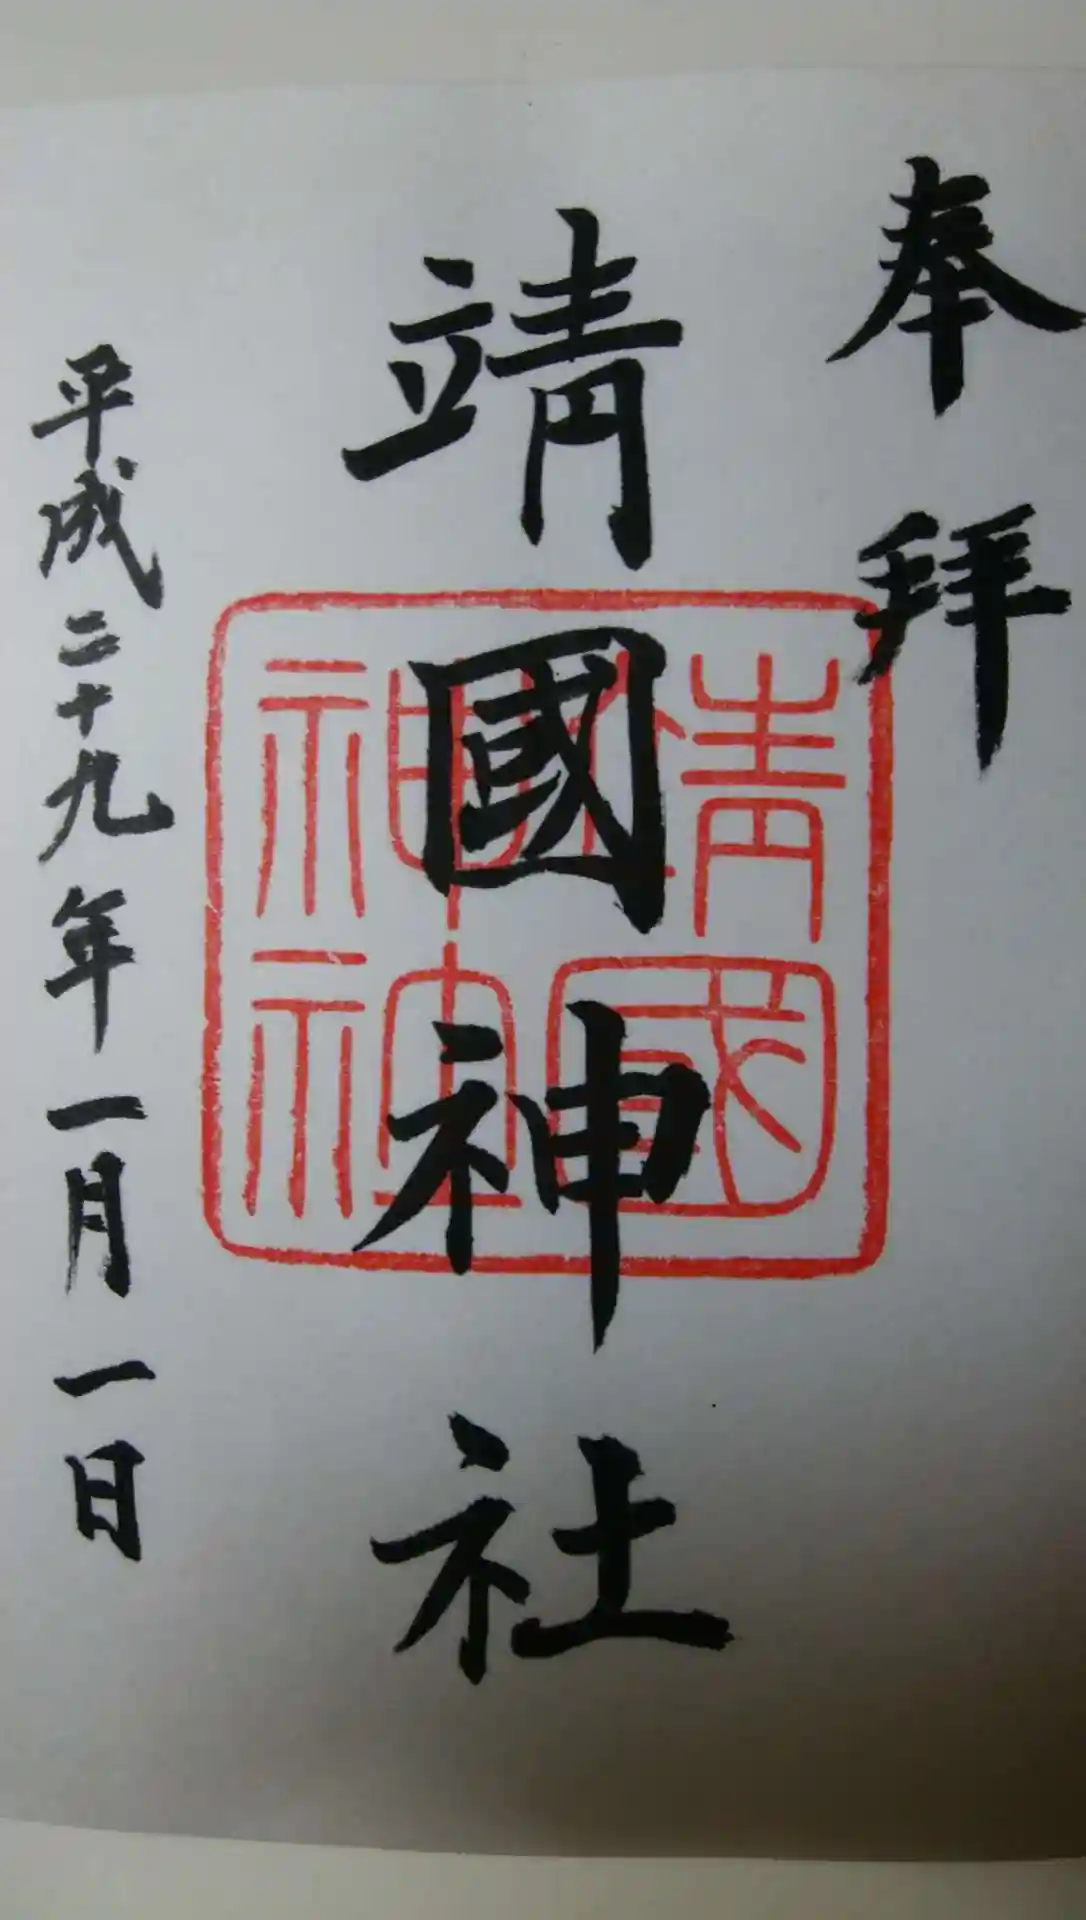 奉拜
靖國神社
靖國
神社
平成二十九年一月一日